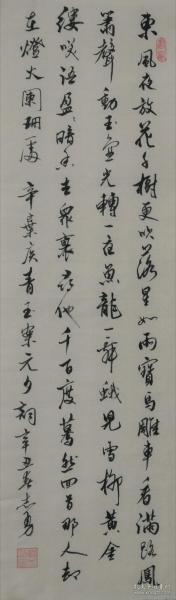 東風夜放花千樹更吹落星如雨寶馬雕車看滿路鳳
簫聲動玉壺光轉一夜魚龍舞蛾兒雪柳黃金
縷笑語盈盈暗香去眾裏尋他千百度驀然回首那人卻
在燈火闌珊處 辛棄疾青玉案元夕詞辛丑春志勇